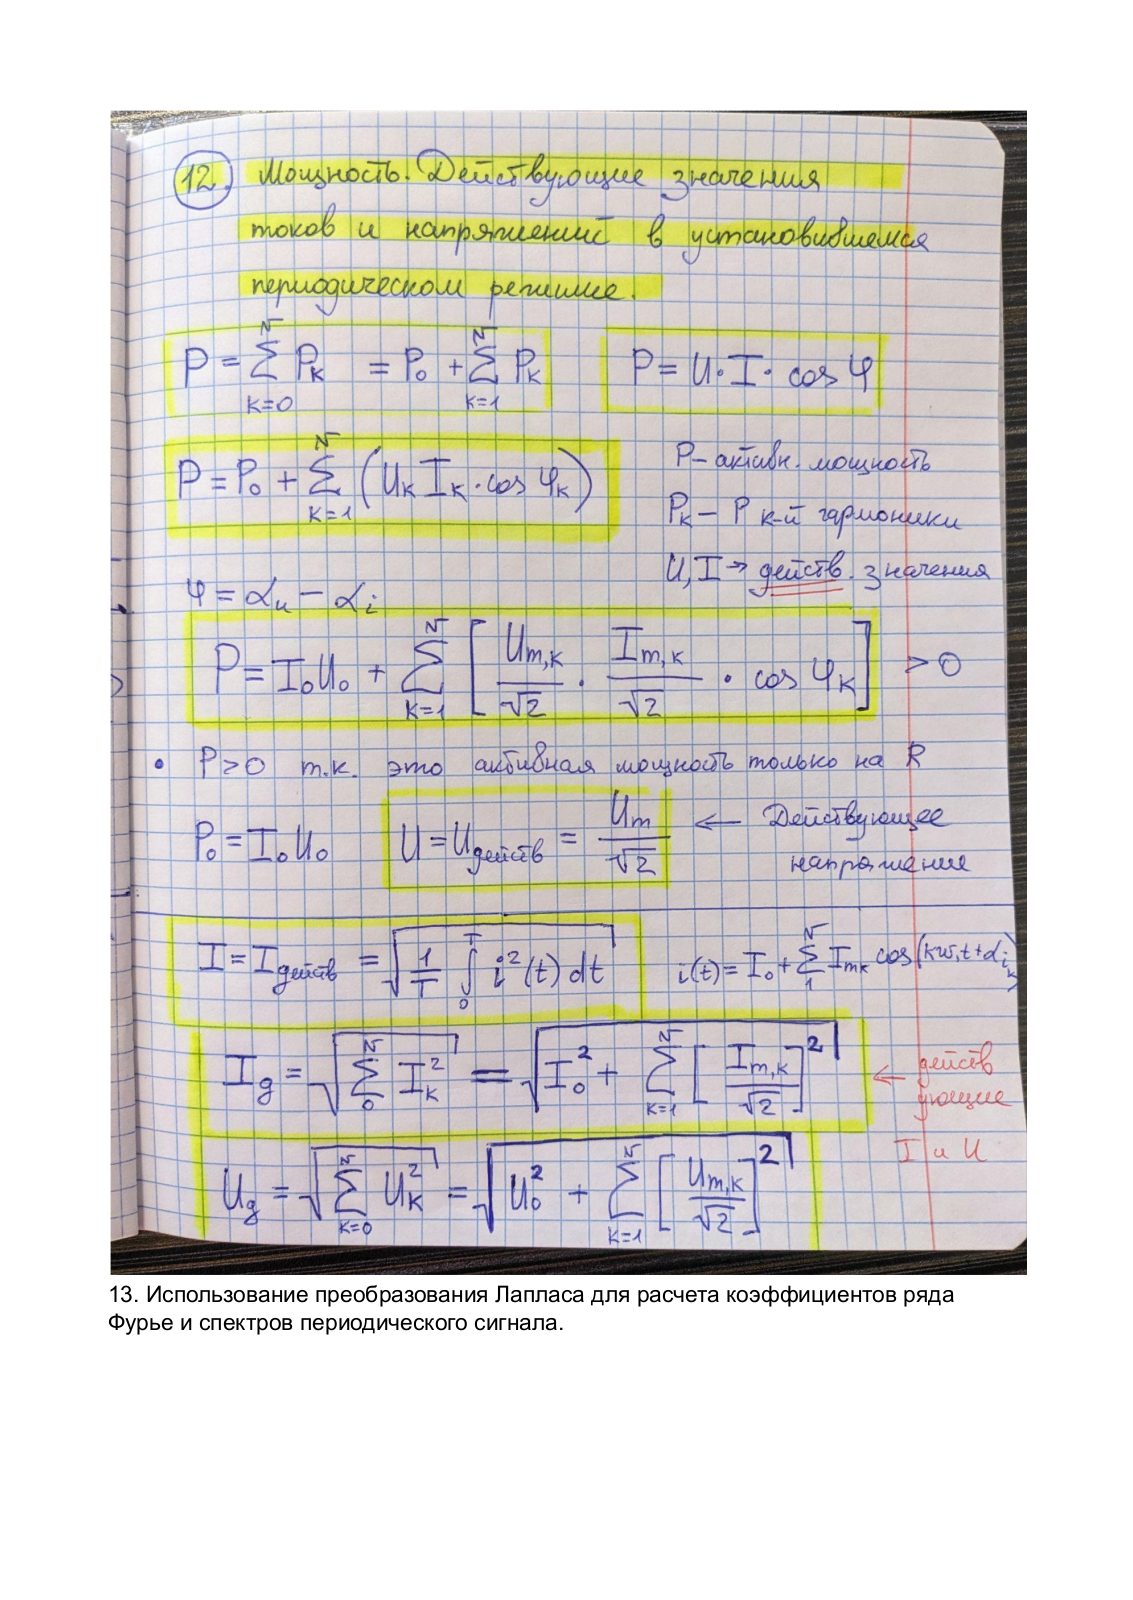 12. Мощность. Действующие значения
токов и напряжений в установившемся
периодическом режиме.
P = ∑_{k=0}^{N} P_k = P_0 + ∑_{k=1}^{N} P_k    P = U·I·cos φ
P = P_0 + ∑_{k=1}^{N} (U_k I_k · cos φ_k)
P – активн. мощность
P_k – P k-й гармоники
U, I → действ. значения
φ = α_u − α_i
P = I_0 U_0 + ∑_{k=1}^{N} [U_{m,k}/√2 · I_{m,k}/√2 · cos φ_k] > 0
• P>0 т.к. это активная мощность только на R
P_0 = I_0 U_0    U = U_действ = U_m/√2 ← Действующее
напряжение
I = I_действ = √(1/T ∫_0^T i²(t) dt)    i(t) = I_0 + ∑_1^N I_{mk} cos(kω_1t + α_{i_k})
I_g = √(∑_0^N I_k²) = √(I_0² + ∑_{k=1}^{N} [I_{m,k}/√2]²) ← действ
ующие
I и U
U_g = √(∑_{k=0}^{N} U_k²) = √(U_0² + ∑_{k=1}^{N} [U_{m,k}/√2]²)
13. Использование преобразования Лапласа для расчета коэффициентов ряда
Фурье и спектров периодического сигнала.